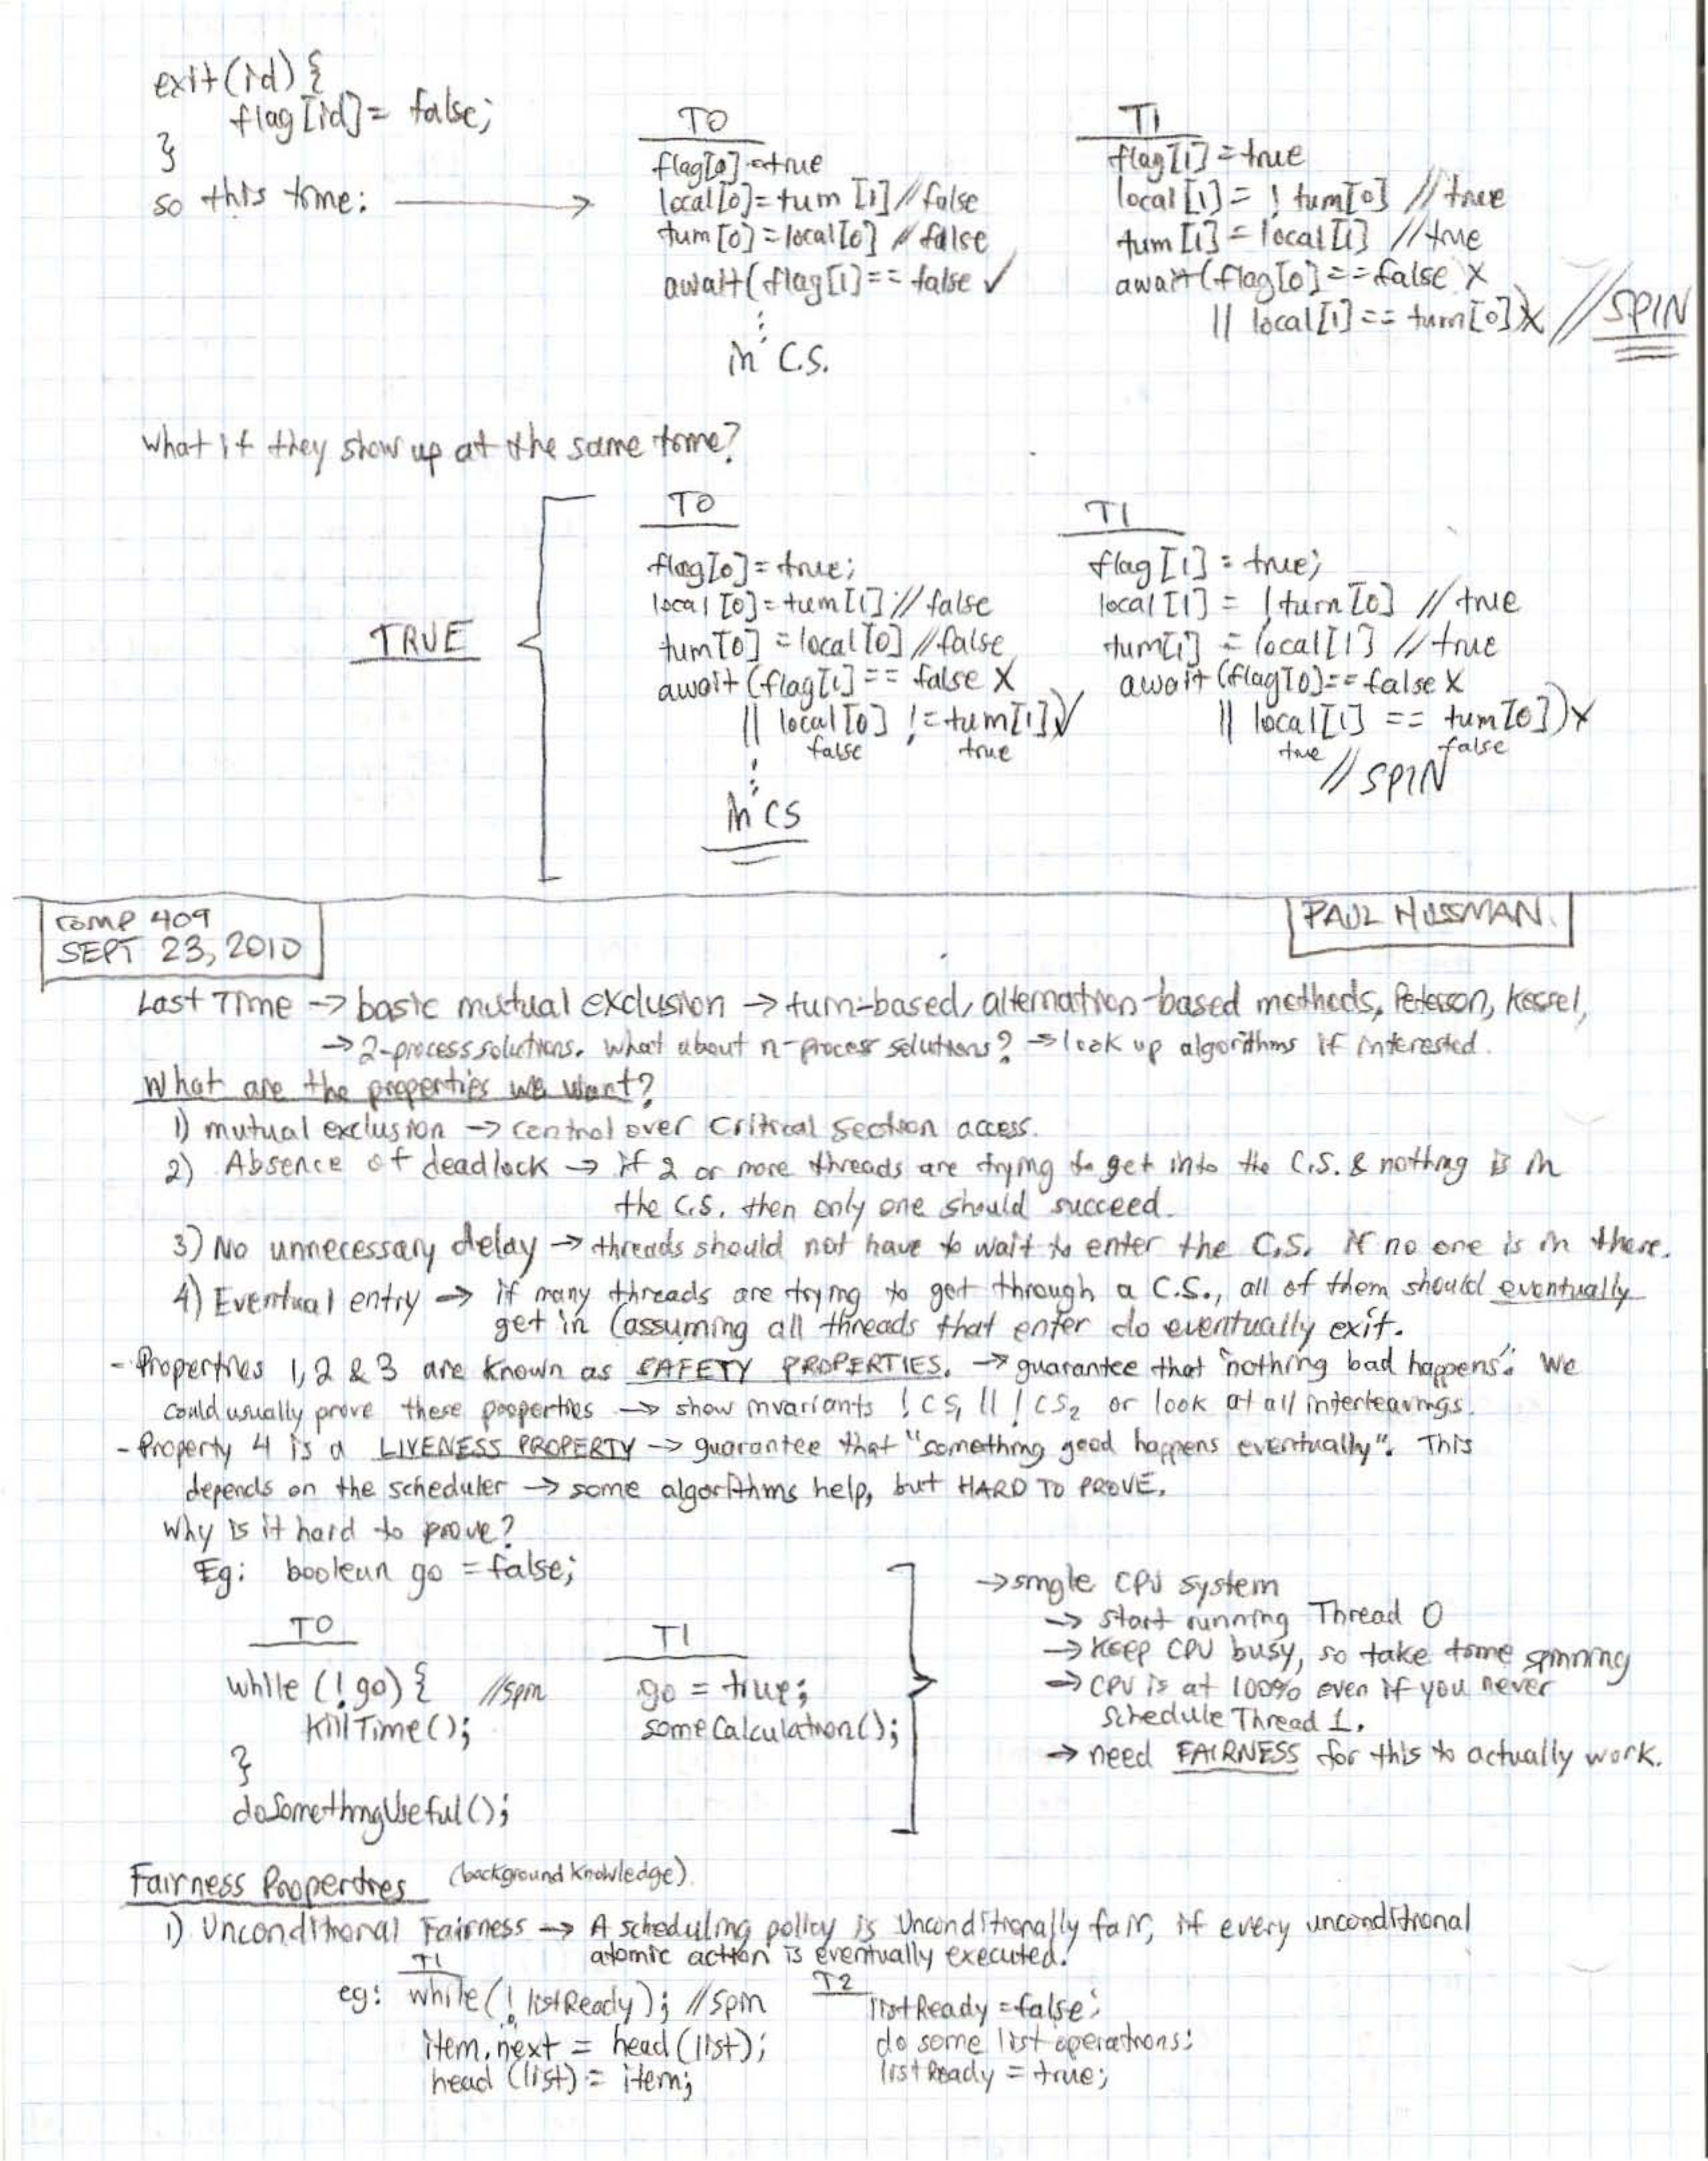 exit(id) {
flag[id] = false;
}
so this time: →
T0
flag[0] = true
local[0] = turn [1] // false
turn[0] = local[0] // false
await(flag[1] == false ✓
⋮
in C.S.
T1
flag[1] = true
local[1] = ! turn[0] // true
turn[1] = local[1] // true
await(flag[0] == false X
|| local[1] == turn[0]) X // SPIN
What if they show up at the same time?
TRUE
T0
flag[0] = true;
local[0] = turn[1] // false
turn[0] = local[0] // false
await (flag[1] == false X
|| local[0] != turn[1]) ✓
false true
⋮
in CS
T1
flag[1] = true;
local[1] = !turn[0] // true
turn[1] = local[1] // true
await (flag[0] == false X
|| local[1] == turn[0]) X
true false
// SPIN
COMP 409
SEPT 23, 2010
PAUL HUSSMAN.
Last Time → basic mutual exclusion → turn-based, alternation-based methods, Peterson, Kessel,
→ 2-process solutions. What about n-process solutions? → look up algorithms if interested.
What are the properties we want?
1) mutual exclusion → control over critical section access.
2) Absence of deadlock → if 2 or more threads are trying to get into the C.S. & nothing is in
the C.S. then only one should succeed.
3) No unnecessary delay → threads should not have to wait to enter the C.S. if no one is in there.
4) Eventual entry → if many threads are trying to get through a C.S., all of them should eventually
get in (assuming all threads that enter do eventually exit.
- Properties 1, 2 & 3 are known as SAFETY PROPERTIES. → guarantee that "nothing bad happens". We
could usually prove these properties → show invariants !CS₁ || !CS₂ or look at all interleavings.
- Property 4 is a LIVENESS PROPERTY → guarantee that "something good happens eventually". This
depends on the scheduler → some algorithms help, but HARD TO PROVE.
Why is it hard to prove?
Eg: boolean go = false;
T0
while (!go) { //spin
KillTime();
}
doSomethingUseful();
T1
go = true;
someCalculation();
→ single CPU system
→ start running Thread 0
→ Keep CPU busy, so take time spinning
→ CPU is at 100% even if you never
schedule Thread 1.
→ need FAIRNESS for this to actually work.
Fairness Properties (background knowledge).
1) Unconditional Fairness → A scheduling policy is Unconditionally fair, if every unconditional
atomic action is eventually executed.
T1
eg: while(! listReady); //spin
item.next = head(list);
head (list) = item;
T2
listReady = false;
do some list operations;
listReady = true;